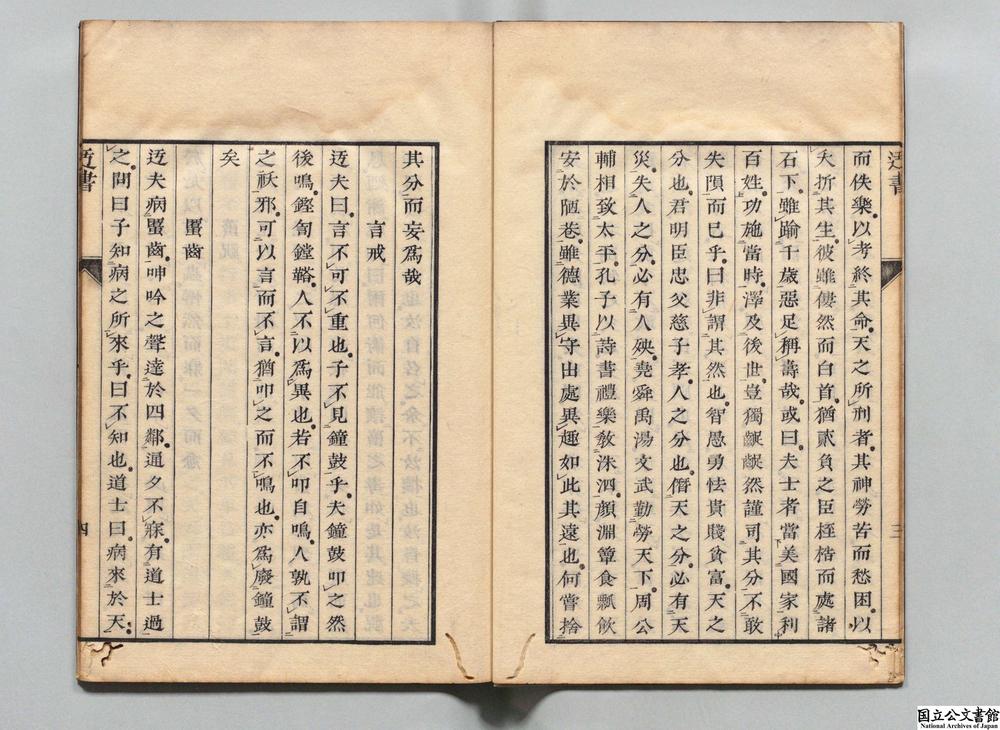 迂書
三
而佚樂以考終其命天之所刑者其神勞苦而愁困以
夭折其生彼雖僂然而白首猶貳負之臣桎梏而處諸
石下雖踰千歲惡足稱壽哉或曰夫士者當美國家利
百姓功施當時澤及後世豈獨齪齪然謹司其分不敢
失隕而已乎曰非謂其然也智愚勇怯貴賤貧富天之
分也君明臣忠父慈子孝人之分也僭天之分必有天
災失人之分必有人殃堯舜禹湯文武勤勞天下周公
輔相致太平孔子以詩書禮樂敎洙泗顏淵簞食瓢飮
安於陋巷雖德業異守出處異趣如此其遠也何嘗捨
其分而妄爲哉
言戒
迂夫曰言不可不重也子不見鐘鼓乎夫鐘鼓叩之然
後鳴鏗訇鏜鞳人不以爲異也若不叩自鳴人孰不謂
之祅邪可以言而不言猶叩之而不鳴也亦爲廢鐘鼓
矣
蠆齒
迂夫病蠆齒呻吟之聲達於四鄰通夕不寐有道士過
之問曰子知病之所來乎曰不知也道士曰病來於天
迂書
四
国立公文書館
National Archives of Japan